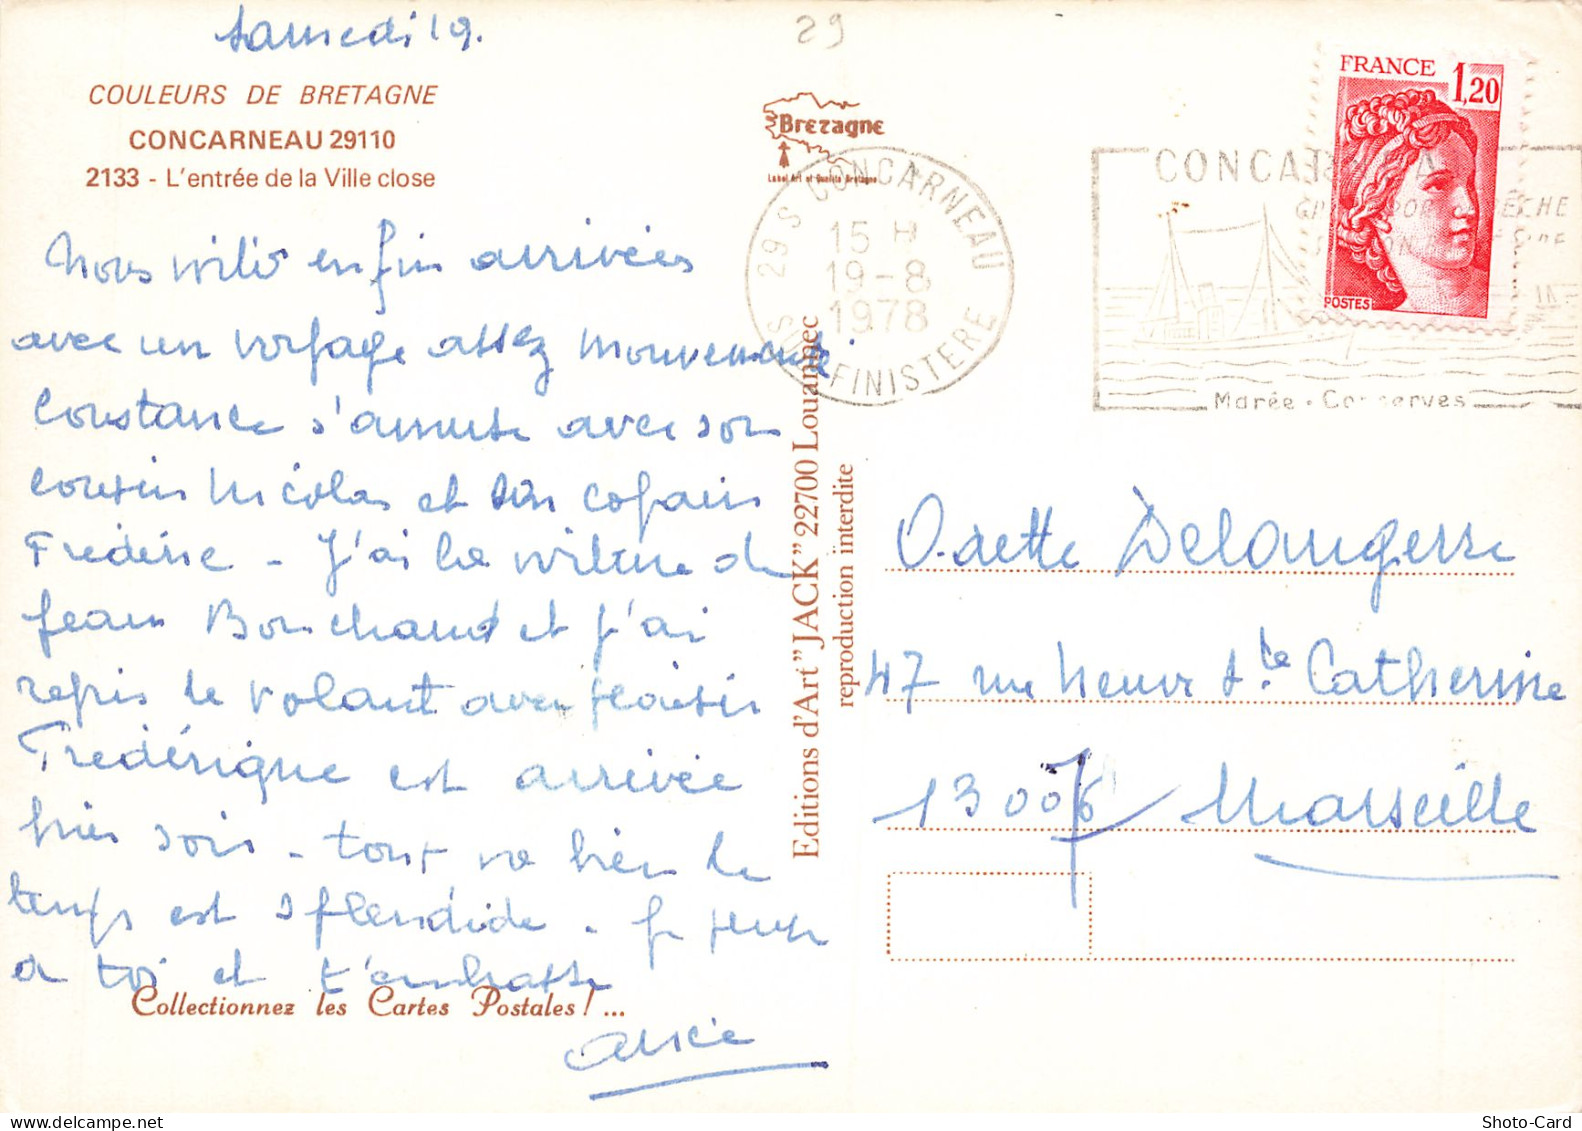 Samedi 19.
29
COULEURS DE BRETAGNE
CONCARNEAU 29110
2133 - L'entrée de la Ville close
Nous voilà enfin arrivées
avec un voyage assez mouvementé
Constance s'amuse avec son
cousin Nicolas et son copain
Frédéric - J'ai la voiture de
Jean Bouchaud et j'ai
repris le volant avec plaisir
Frédérique est arrivée
hier soir - tout va bien le
temps est splendide - Je pense
à toi et t'embrasse
Collectionnez les Cartes Postales ! ...
Bretagne
Label Art et Qualité Bretagne
Editions d'Art "JACK" 22700 Louannec
reproduction interdite
29 S CONCARNEAU
15 H
19-8
1978
SUD FINISTERE
FRANCE 1,20
POSTES
CONCA
Marée - Conserves
Odette Delangerre
47 rue Neuve Ste Catherine
13007 Marseille
Shoto-Card